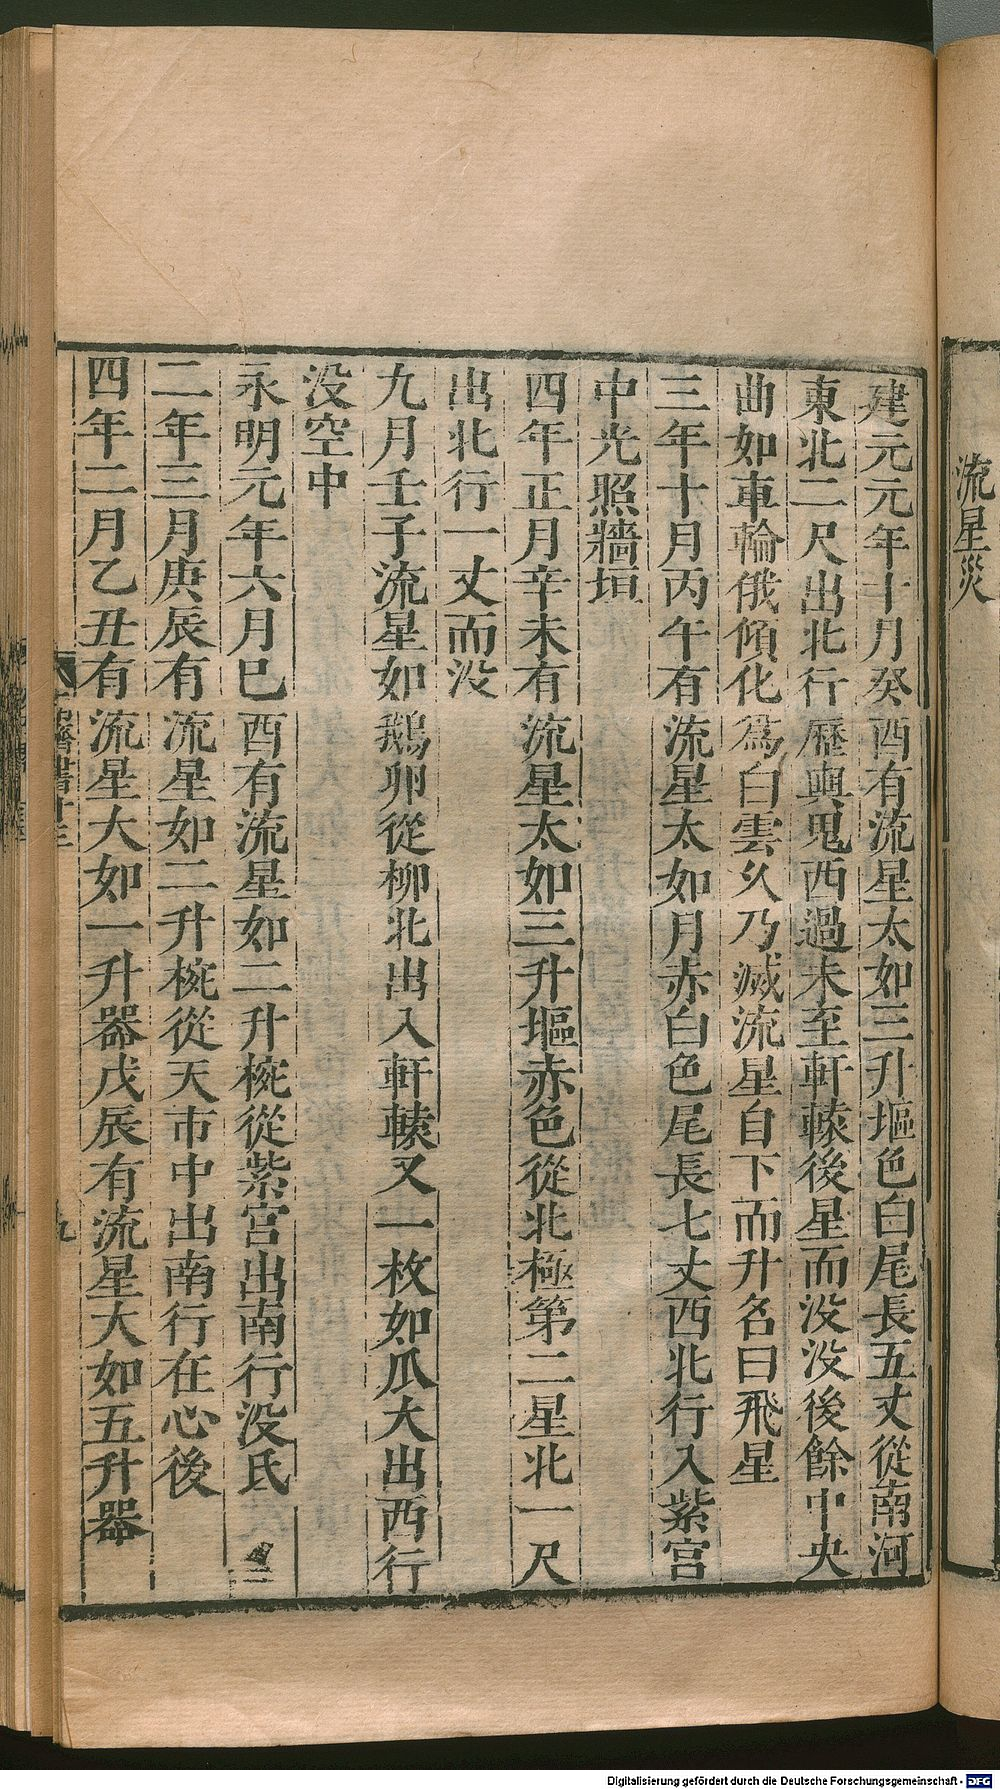 流星災
建元元年十月癸酉有流星太如三升塸色白尾長五丈從南河
東北二尺出北行歷輿鬼西過未至軒轅後星而没没後餘中央
曲如車輪俄傾化爲白雲久乃滅流星自下而升名曰飛星
三年十月丙午有流星太如月赤白色尾長七丈西北行入紫宫
中光照牆垣
四年正月辛未有流星太如三升塸赤色從北極第二星北一尺
出北行一丈而没
九月壬子流星如鵝卵從柳北出入軒轅又一枚如瓜大出西行
没空中
永明元年六月巳酉有流星如二升椀從紫宫出南行没氐
二年三月庚辰有流星如二升椀從天市中出南行在心後
四年二月乙丑有流星大如一升器戊辰有流星大如五升器
九
Digitalisierung gefördert durch die Deutsche Forschungsgemeinschaft - DFG